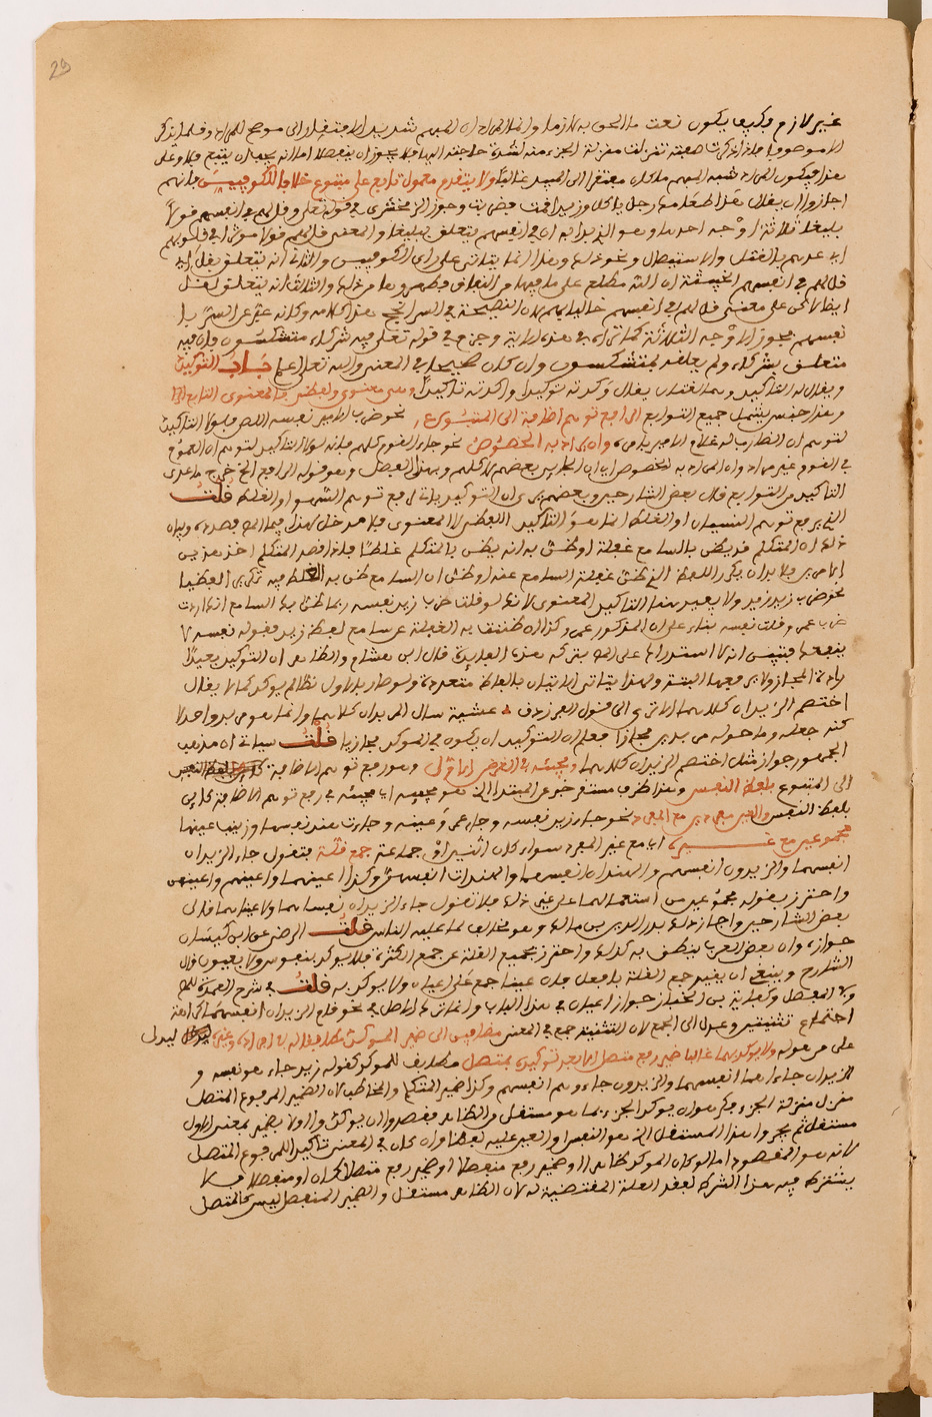 29
غير لازم وكيف يكون نعت ما الحق به لازما وانما المراد ان المبهم شديد الافتقار الى موضح للمراد وقلما يذكر
الا موصوفا فاذا ذكرت صفته تنزلت منزلة الجزء منه لشدة حاجته اليها فلا يجوز ان ينفصلا اما انه يجب ان يتبع فلا وعلى
هذا فيكون المراد شبه المبهم ما كان مفتقرا الى غالبا ولا يتقدم معمول تابع على متبوع خلافا للكوفيين فانهم
اجازوا ان يقال هذا طعامك رجل ياكل وزيدا قمت فضربت وجوز الزمخشري في قوله تعلى وقل لهم في انفسهم قولا
بليغا ثلاثة اوجه احدها وهو الذي ان في انفسهم يتعلق ببليغا والمعنى قل لهم قولا موثرا في قلوبهم
قل لهم في انفسهم الخبيثة ان الله مطلع على ما فيها من النفاق والثالث انه يتعلق بقل
ايضا لاكن على معنى قل لهم في انفسهم خاليا بهم لان النصيحة في السر انجح هذا كلامه وكانه عبر عن السر با
نفسهم فجوز الاوجه الثلاثة كما ترى في هذه الاية وجزم في قوله تعلى فيه شركاء متشاكسون فان فيه
متعلق بشركاء ولم يعلقه بمتشاكسون وان كان صحيحا في المعنى والله تعلى اعلم باب التوكيد
ويقال له التاكيد وهما لغتان يقال وكدته توكيدا واكدته تاكيدا وهو معنوي ولفظي فالمعنوي التابع
وهذا جنس يشمل جميع التوابع الرافع توهم اضافة الى المتبوع نحو ضرب الامير نفسه اللص فلولا التاكيد
لتوهم ان الضارب له غلام الامير بامره واو ان يراد به الخصوص نحو جاء القوم كلهم فانه لولا التاكيد لتوهم ان العموم
في القوم غير مراد وان المراد به الخصوص اي ان الجاءي بعضهم لا كلهم وبهذا الفصل وهو قوله الرافع الخ خرج ما عدى
التاكيد من التوابع قال بعض الشارحين وبعضهم يرى ان التوكيد ياتي لرفع توهم السهو او الغلط قلت
الذي يرفع توهم النسيان او الغلط انما هو التاكيد اللفظي لا المعنوي فلا مدخل لهذا فيما المص بصدده وبيان
ذلك ان المتكلم قد يظن بالسامع غفلة او ظن به انه يظن بالمتكلم غلطا فاذا قصد المتكلم احد هذين
الامرين فلا بد ان يكرر اللفظ الذي ظن غفلة السامع عنه او ظن ان السامع ظن به الغلط فيه تكريرا لفظيا
نحو ضرب زيد زيد ولا يفيد هنا التاكيد المعنوي لانك لو قلت ضرب زيد نفسه ربما ظن بك السامع انك اردت
ضرب عمرو قلت نفسه بناء على ان المذكور عمرو وكذا ان ظننت به الغفلة عن سماع لفظة زيد فقوله نفسه لا
ينفعك فتبين انه لا استدراك على المص بتركه هذه الفايدة قال ابن هشام والظاهر ان التوكيد يبعد
ارادة المجاز ولا يرفعها البتة ولهذا يتاتى الاتيان بالفاظ متعددة ولو صار بالاول نصا لم يوكد كما لا يقال
اختصم الزيدان كلاهما الا ترى الى قول الفرزدق عشية سال المربدان كلاهما وانما هو مربد واحد لا
كنه جعله وما حوله مربدين مجازا فعلم ان التوكيد ان يكون في الموكد مجازيا قلت سياتي ان مذهب
الجمهور جواز مثل اختصم الزيدان كلاهما ومجيئه في الغرض الاول وهو رفع توهم الاضافة
الى المتبوع بلفظ النفس وهذا ظرف مستقر خبر عن المبتدا الذي هو مجيئه اي مجيئه في رفع توهم الاضافة كاين
بلفظ النفس والعين مفردين مع المفرد نحو جاء زيد نفسه وجاء عمرو عينه وجاءت هند نفسها وزينب عينها
مجموعين مع غيره اي مع غير المفرد سواء كان اثنين او جماعة جمع قلة فتقول جاء الزيدان
انفسهما والزيدون انفسهم والهندان انفسهما والهندات انفسهن وكذا اعينهما واعينهم واعينهن
واحترز بقوله مجموعين من استعمالهما على غير ذلك فلا تقول جاء الزيدان نفسهما ولا عيناهما قال
بعض الشارحين واجاز ذلك بدر الدين بن مالك وهو مخالف لما عليه الناس قلت الرضي عن ابن كيسان
جوازه وان بعض العرب ينطق به كذلك واحترز بجمع القلة عن جمع الكثرة فلا يوكد بنفوس ولا بعيون قال
الشارح وينبغي ان يقيد جمع القلة بافعل فان عينا جمع على اعيان ولا يوكد به قلت في شرح العمدة للمص
اجتماع تثنيتين وعدل الى الجمع لان التثنية جمع في المعنى مضافين الى ضمير الموكد مطابقا له في افراده وغيره ليدل
على من هو له ولا يوكد بهما غالبا ضمير رفع متصل الا بعد توكيده بمنفصل مطابق للموكد كقوله زيد جاء هو نفسه و
الزيدان جاءا هما انفسهما والزيدون جاءوا هم انفسهم وكذا ضمير المتكلم والمخاطب لان الضمير المرفوع المتصل
منزل منزلة الجزء فكرهوا ان يوكد الجزء بما هو مستقل من الظاهر فقصدوا ان يوكد اولا بضمير بمعنى الاول
مستقل ثم يجروا هذا المستقل الذي هو النفس او العين عليه لفظا وان كان في المعنى تاكيدا للمرفوع المتصل
لانه هو المقصود اما لو كان الموكد ظاهرا او ضمير رفع منفصلا او ضمير نصب متصلا كان او منفصلا فلا
يشترط فيه هذا الشرط لفقد العلة المقتضية له لان الظاهر مستقل والضمير المنفصل ليس كالمتصل